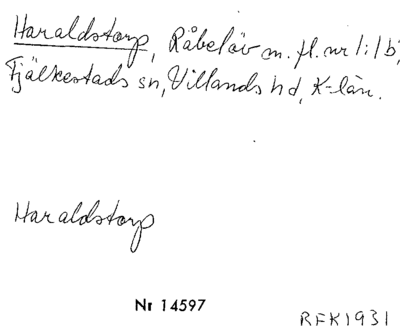 Haraldstorp, Råbelöv m. fl. nr 1:1 b,
Fjälkestads sn, Villands hd, K-län.
Haraldstorp
Nr 14597
RFK1931